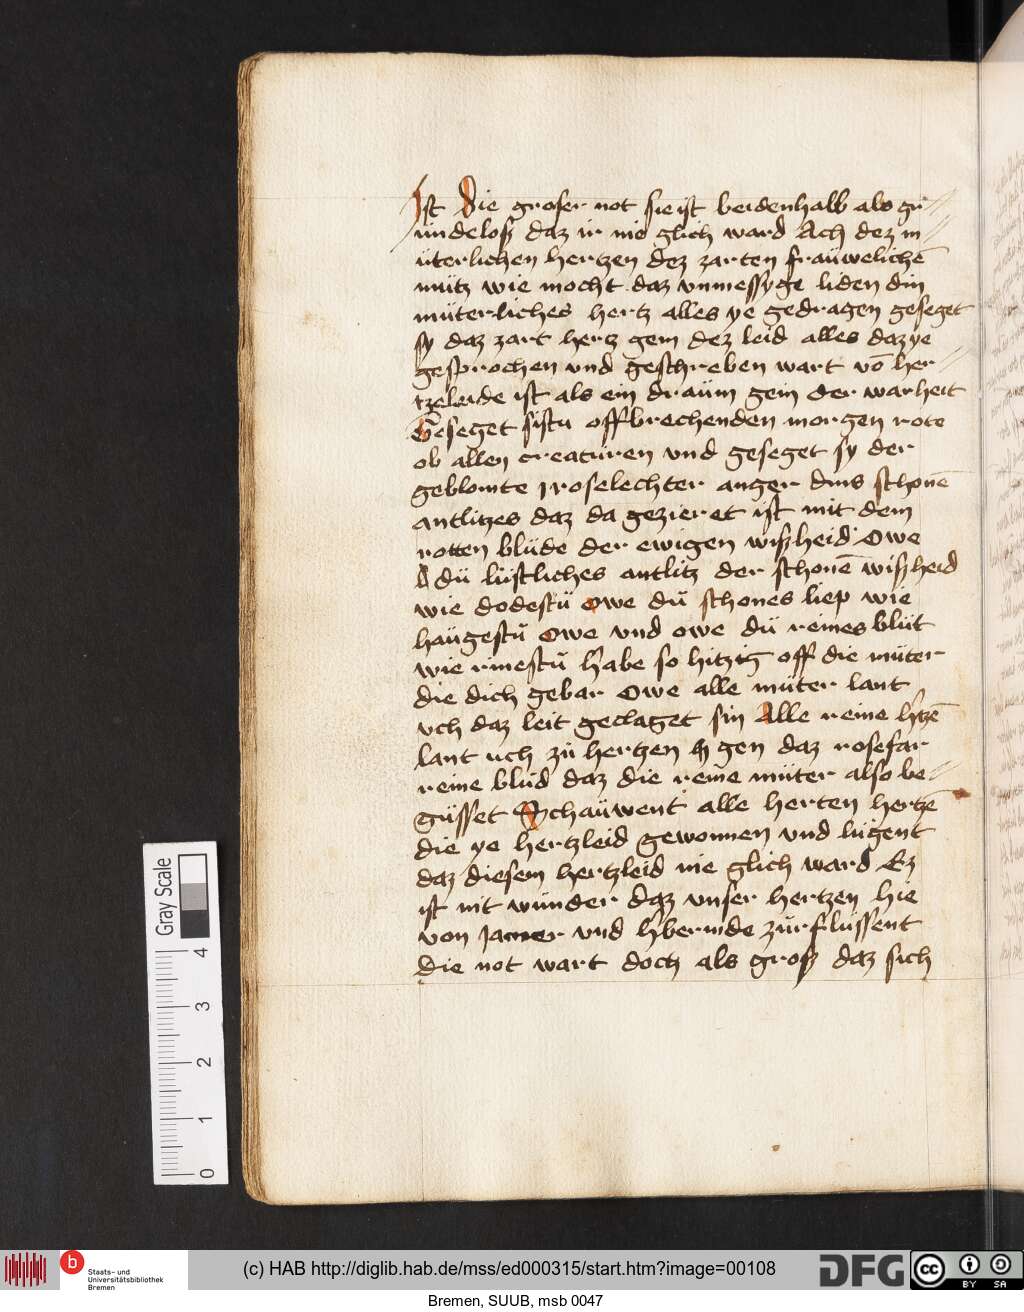 Ist Die groser not sie ist beidenhalb also gr
ündeloß daz ir nie glich ward Ach dez m
üterlichen hertzen dez zarten fraüwelichē
mütz wie mocht daz vnmessyge liden din
müterliches hertz alles ye gedragen geseget
sy daz zart hertz gem dez leid alles daz ye
gesprochen vnd geschreben wart vō her
tzeleide ist als ein draüm gein der warheit
Geseget sistu offbrechenden morgen rote
ob allen creatüren vnd geseget sy der
geblomte roselechter anger dins schonē
antlitzes daz da gezieret ist mit dem
rotten blüde der ewigen wißheid Owe
A dü lüstliches antlitz der schonē wißheid
wie dodestü owe dü schones liep wie
haügestü owe vnd owe dü reines blüt
wie rinestü herabe so hitzig off die müter
die dich gebar owe alle müter lant
vch daz leit geclaget sin Alle reine h'tzē
lant uch zü hertzen gen daz rosefar
reine blüd daz die reine müter also be
güsset Schaüwent alle herten hertzē
die ye hertzleid gewonnen vnd lügent
daz diesem hertzleid nie glich ward Ez
ist nit wünder daz vnser hertzen hie
von Jamer vnd h'bermde zürflüssent
die not wart doch als groß daz sich
Gray Scale
4
3
2
1
0
b
Staats- und
Universitätsbibliothek
Bremen
(c) HAB http://diglib.hab.de/mss/ed000315/start.htm?image=00108
DFG
cc
BY SA
Bremen, SUUB, msb 0047